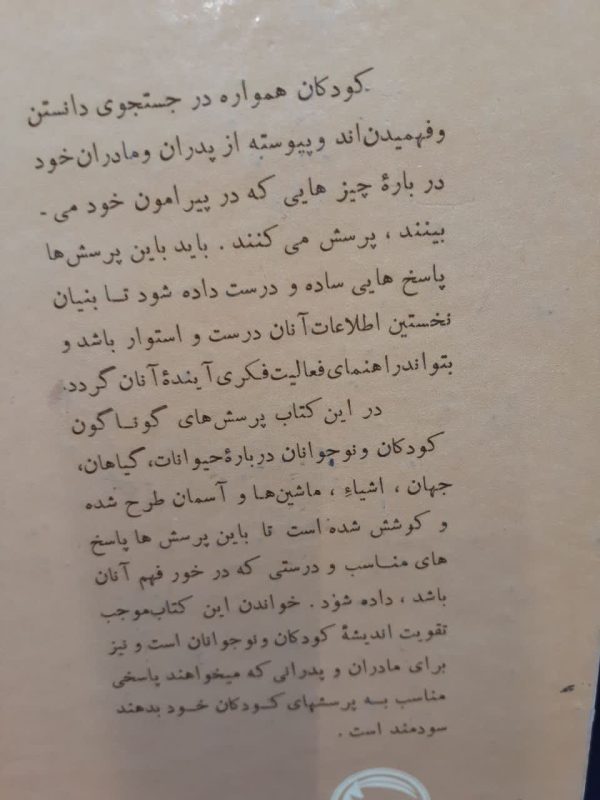 کودکان همواره در جستجوی دانستن
وفهمیدن‌اند وپیوسته از پدران ومادران‌خود
در بارهٔ چیز هایی که در پیرامون خود می -
بینند ، پرسش می کنند . باید باین پرسش‌ها
پاسخ هایی ساده و درست داده شود تـا بنیان
نخستین اطلاعات‌آنان درست و استوار باشد و
بتواندراهنمای‌فعالیت‌فکری‌آیندهٔ‌آنان گردد.
در این کتاب پرسش‌های گونـاگون
کودکان ونوجوانان دربارهٔ‌حیوانات، گیاهان،
جهان ، اشیاءِ ، ماشین‌هـا و آسمان طرح شده
و کوشش شده است تا باین پرسش ها پاسخ
های منـاسب و درستی که در خور فهم آنان
باشد ، داده شود . خواندن این کتاب‌موجب
تقویت اندیشهٔ کودکان ونوجوانان است و نیز
برای مادران و پدرانی که میخواهند پاسخی
مناسب بـه پرسشهای کـودکان خـود بدهند
سودمند است .